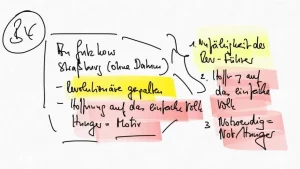 BK
Straßburg (ohne Dahmen)
- Revolutionäre gespalten
- Hoffnung auf das einfache Volk
Hunger = Motiv
1. Unfähigkeit der
Rev-Führer
2. Hoffg auf
das einfache
Volk
3. Notwendig =
Not/Hunger